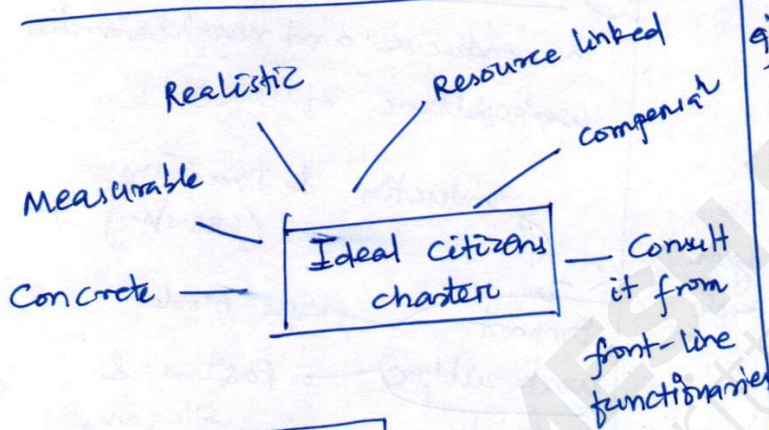 Realistic
Resource linked
Measurable
Concrete
Ideal citizens
charter
Consult
it from
front-line
functionaries